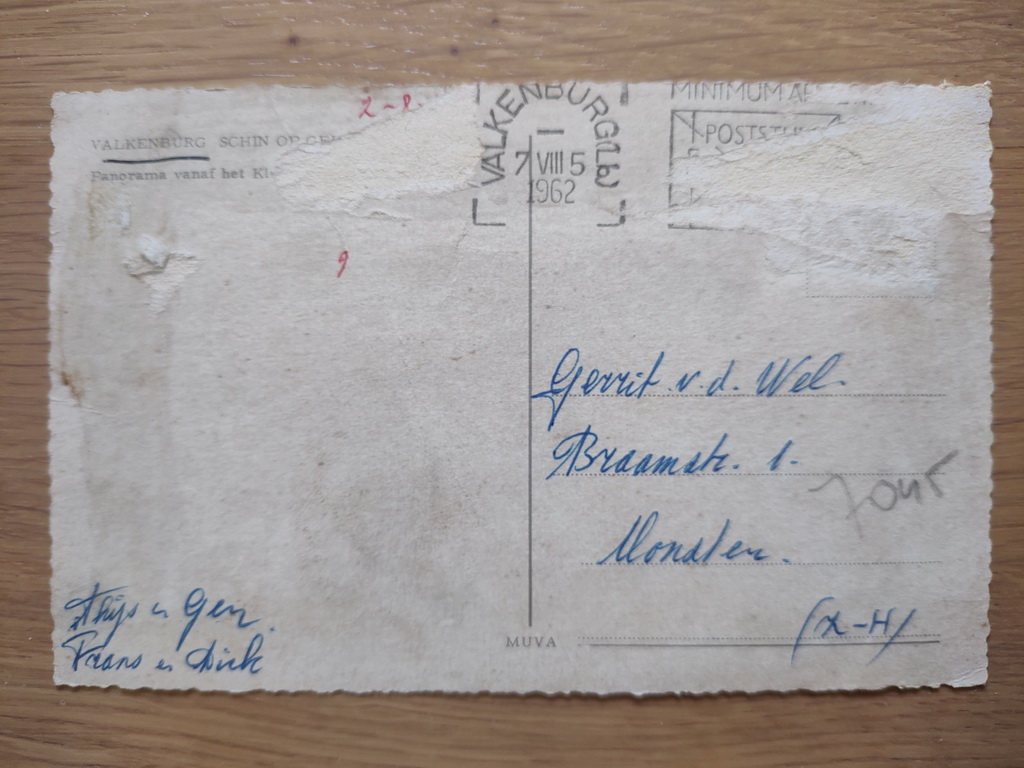 2-8.
VALKENBURG SCHIN OP GEU
Panorama vanaf het Kl
VALKENBURG (Lb)
7 VIII 5
1962
MINIMUM AF
POSTST
9
Gerrit v.d. Wel.
Braamstr. 1.
Monster.
(Z-H)
Thijs en Gen
Frans en Dirk
MUVA